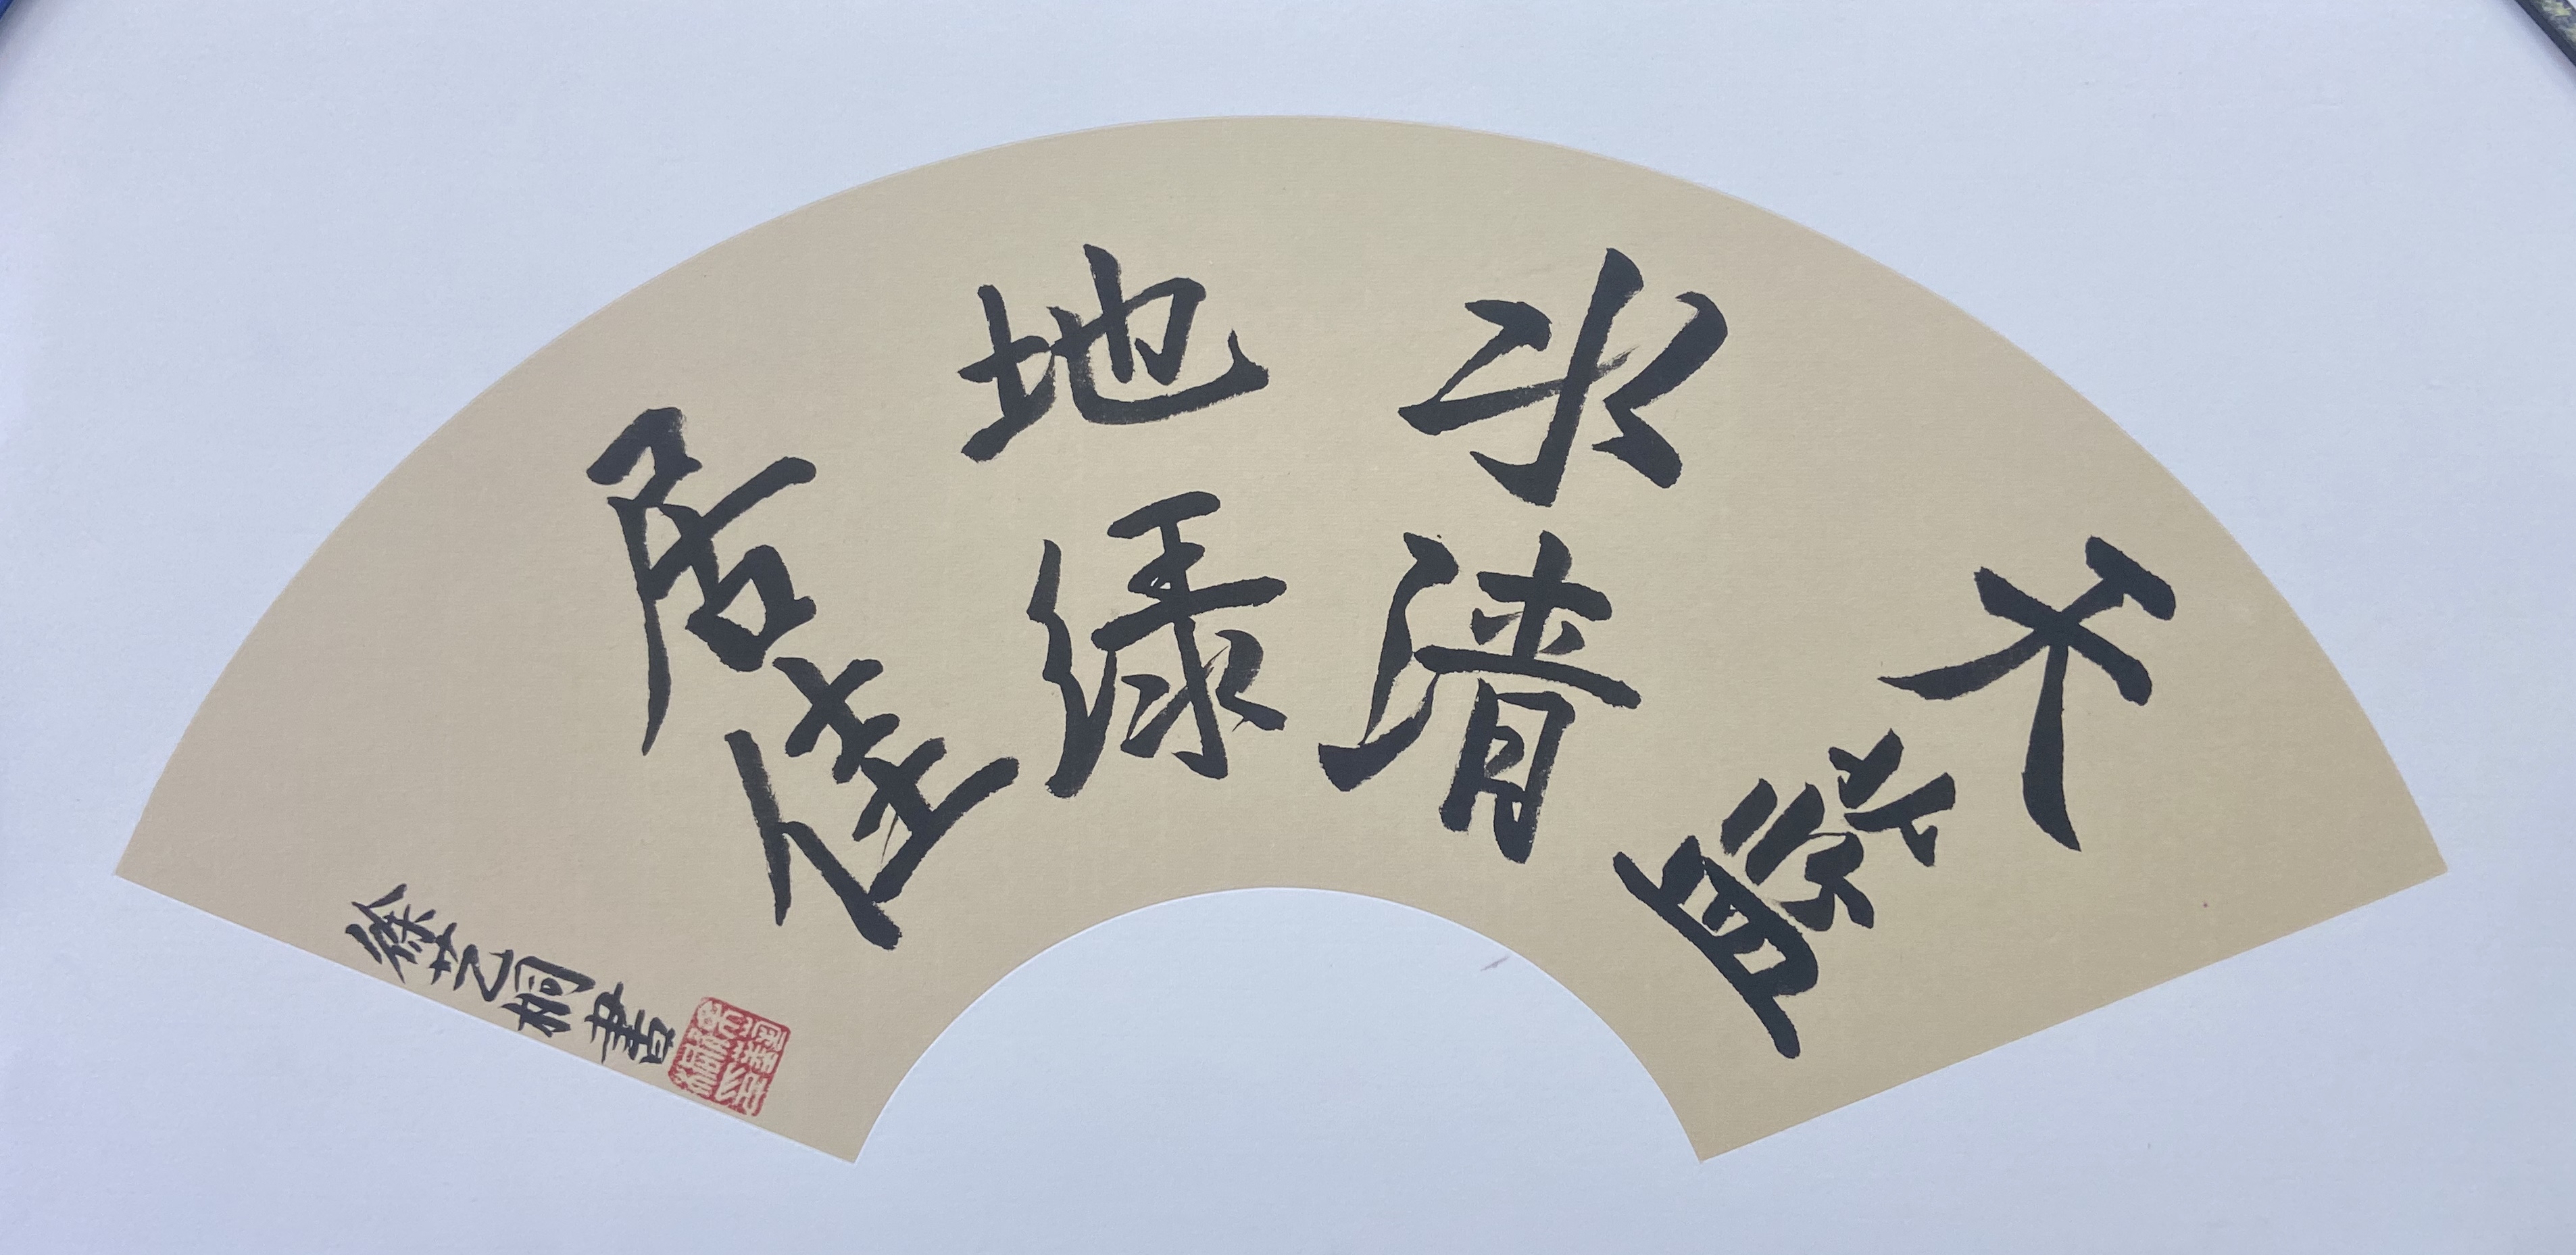 天蓝
水清
地绿
居佳
徐艺桐书